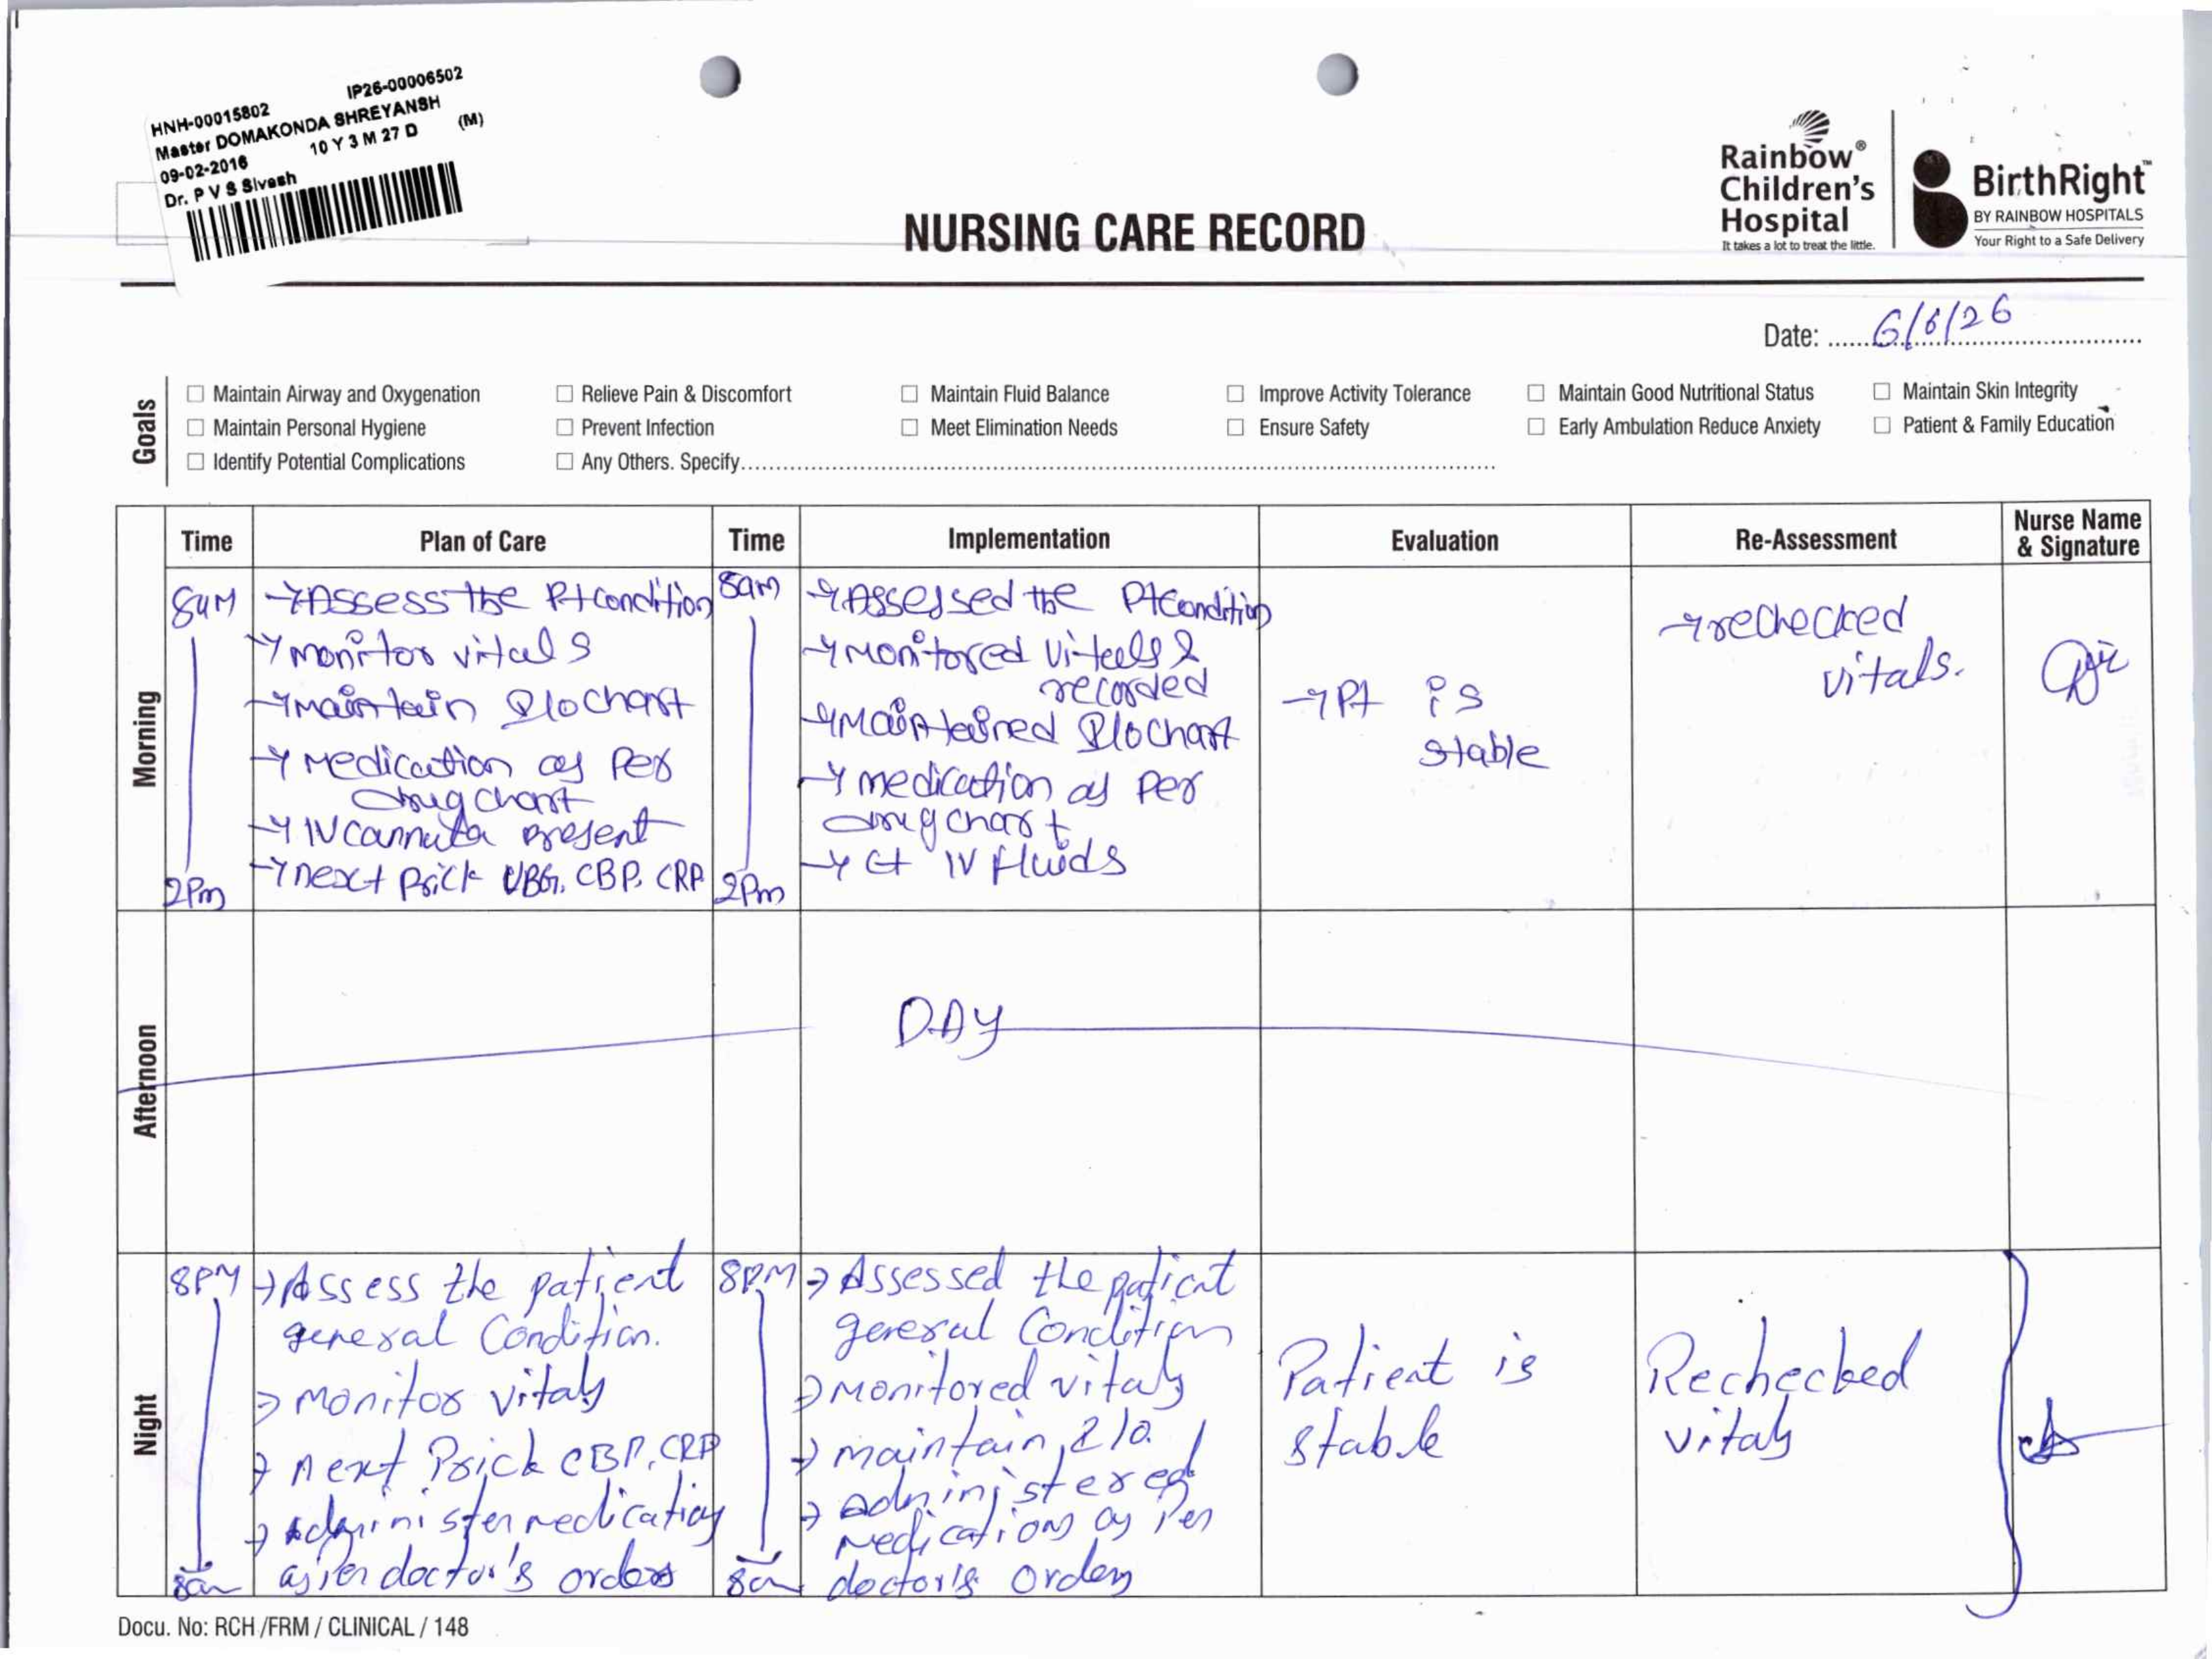 HNH-00015802 IP26-00006502
Master DOMAKONDA SHREYANSH
09-02-2016 10 Y 3 M 27 D (M)
Dr. P V S Sivesh
NURSING CARE RECORD
Rainbow®
Children's
Hospital
It takes a lot to treat the little.
BirthRight™
BY RAINBOW HOSPITALS
Your Right to a Safe Delivery
Date: 6/6/26
Goals
☐ Maintain Airway and Oxygenation ☐ Relieve Pain & Discomfort ☐ Maintain Fluid Balance ☐ Improve Activity Tolerance ☐ Maintain Good Nutritional Status ☐ Maintain Skin Integrity
☐ Maintain Personal Hygiene ☐ Prevent Infection ☐ Meet Elimination Needs ☐ Ensure Safety ☐ Early Ambulation Reduce Anxiety ☐ Patient & Family Education
☐ Identify Potential Complications ☐ Any Others. Specify
Time Plan of Care Time Implementation Evaluation Re-Assessment Nurse Name & Signature
Morning
8am
2Pm
→ Assess the Pt condition
→ monitor vitals
→ maintain I/o chart
→ medication as Per
drug chart
→ IV cannula present
→ next prick VBG, CBP, CRP
8am
2Pm
→ Assessed the Pt condition
→ monitored vitals &
recorded
→ maintained I/o chart
→ medication as Per
drug chart
→ Ct IV fluids
→ Pt is
stable
→ rechecked
vitals.
Afternoon
DAY
Night
8PM
8am
→ Assess the patient
general Condition.
→ monitor vitals
→ next Prick CBP, CRP
→ Administer medication
as per doctor's orders
8PM
8am
→ Assessed the patient
general Condition
→ Monitored vitals
→ maintain I/o.
→ administered
medications as per
doctor's orders
Patient is
stable
Rechecked
vitals
Docu. No: RCH /FRM / CLINICAL / 148